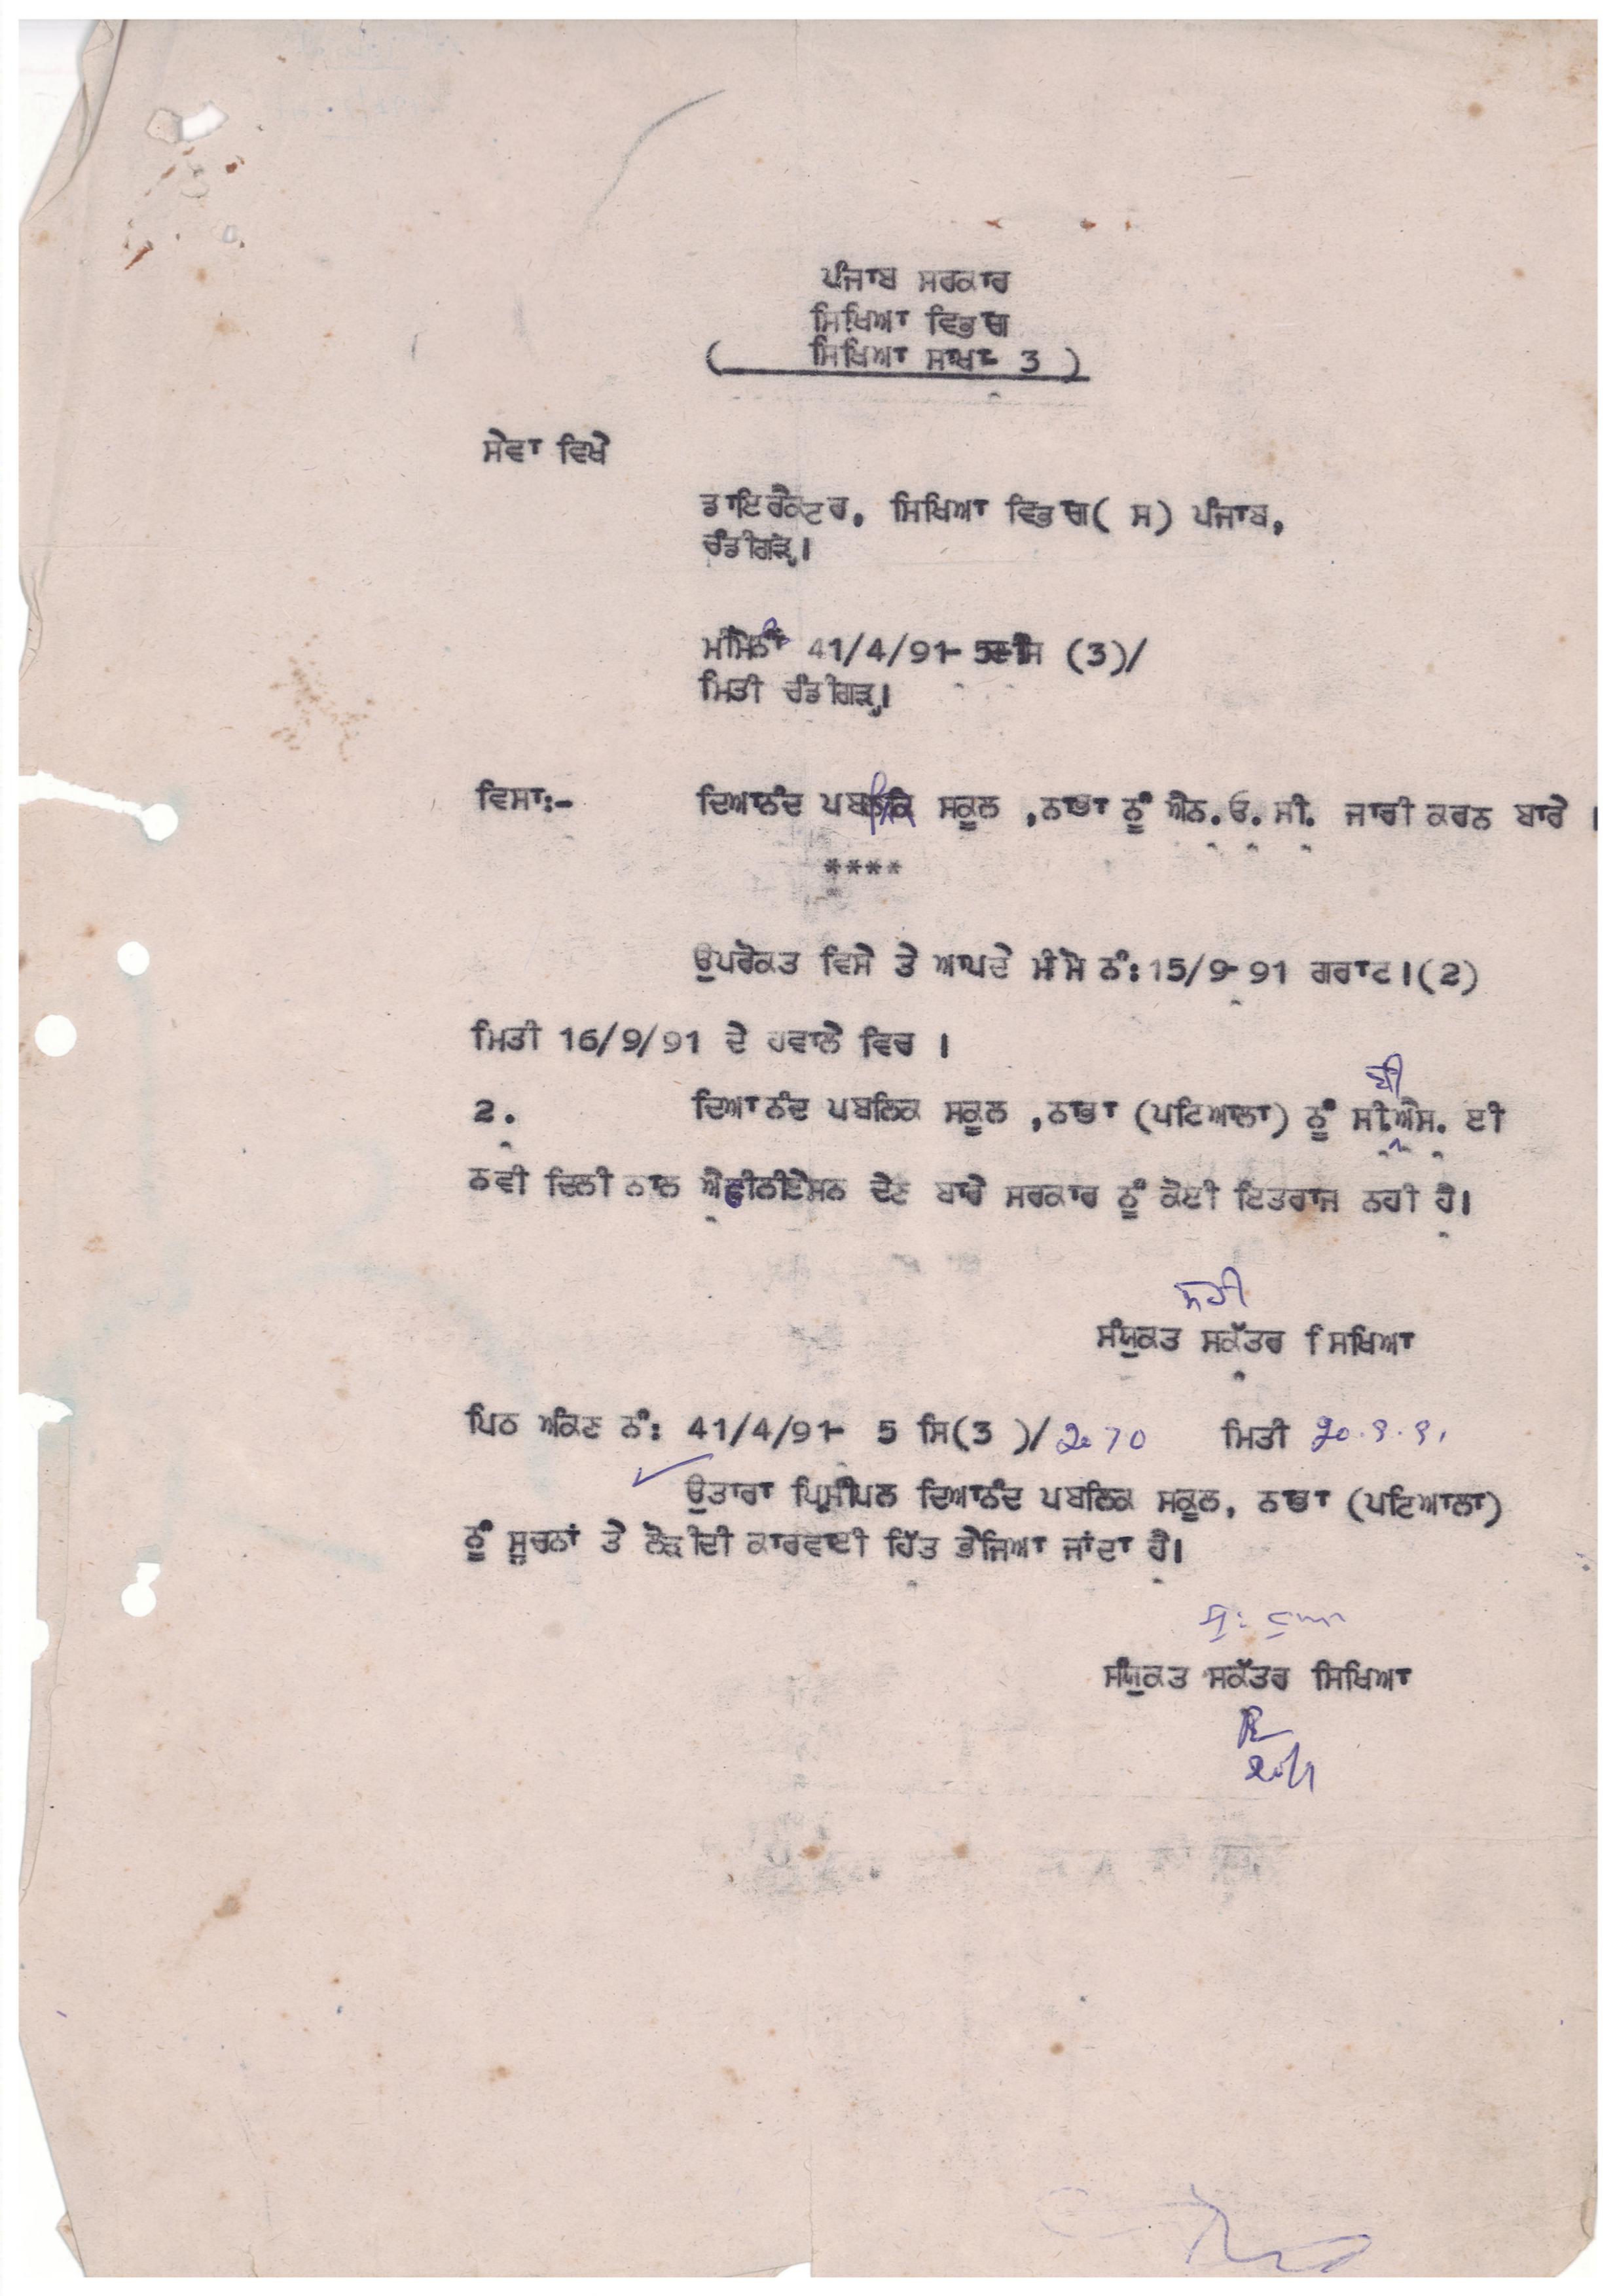 ਪੰਜਾਬ ਸਰਕਾਰ
ਸਿਖਿਆ ਵਿਭਾਗ
( ਸਿਖਿਆ ਸਾਖਾ- 3 )
ਸੇਵਾ ਵਿਖੇ
ਡਾਇਰੈਕਟਰ, ਸਿਖਿਆ ਵਿਭਾਗ( ਸ) ਪੰਜਾਬ,
ਚੰਡੀਗੜ੍ਹ।
41/4/91- (3)/
ਮਿਤੀ ਚੰਡੀਗੜ੍ਹ।
ਵਿਸਾ:- ਦਿਆਨੰਦ ਪਬਲਿਕ ਸਕੂਲ ,ਨਾਭਾ ਨੂੰ ਐਨ.ਓ. ਸੀ. ਜਾਰੀ ਕਰਨ ਬਾਰੇ ।
****
ਉਪਰੋਕਤ ਵਿਸੇ ਤੇ ਆਪਦੇ ਮੀਮੋ ਨੰ:15/9-91 ਗਰਾਟ।(2)
ਮਿਤੀ 16/9/91 ਦੇ ਹਵਾਲੇ ਵਿਚ ।
2. ਦਿਆਨੰਦ ਪਬਲਿਕ ਸਕੂਲ ,ਨਾਭਾ (ਪਟਿਆਲਾ) ਨੂੰ ਸੀ.ਬੀ ਐਸ. ਈ
ਨਵੀ ਦਿਲੀ ਨਾਲ ਐਫੀਲੀਏਸਨ ਦੇਣ ਬਾਰੇ ਸਰਕਾਰ ਨੂੰ ਕੋਈ ਇਤਰਾਜ ਨਹੀ ਹੈ।
ਸਹੀ
ਸੰਯੁਕਤ ਸਕੱਤਰ ਸਿਖਿਆ
ਪਿਠ ਅੰਕਣ ਨੰ: 41/4/91- 5 ਸਿ(3 )/2070 ਮਿਤੀ 20.9.91
ਉਤਾਰਾ ਪ੍ਰਿਸੀਪਲ ਦਿਆਨੰਦ ਪਬਲਿਕ ਸਕੂਲ, ਨਾਭਾ (ਪਟਿਆਲਾ)
ਨੂੰ ਸੂਚਨਾਂ ਤੇ ਲੋੜੀਦੀ ਕਾਰਵਾਈ ਹਿੱਤ ਭੇਜਿਆ ਜਾਂਦਾ ਹੈ।
ਸੰਯੁਕਤ ਸਕੱਤਰ ਸਿਖਿਆ
20/9